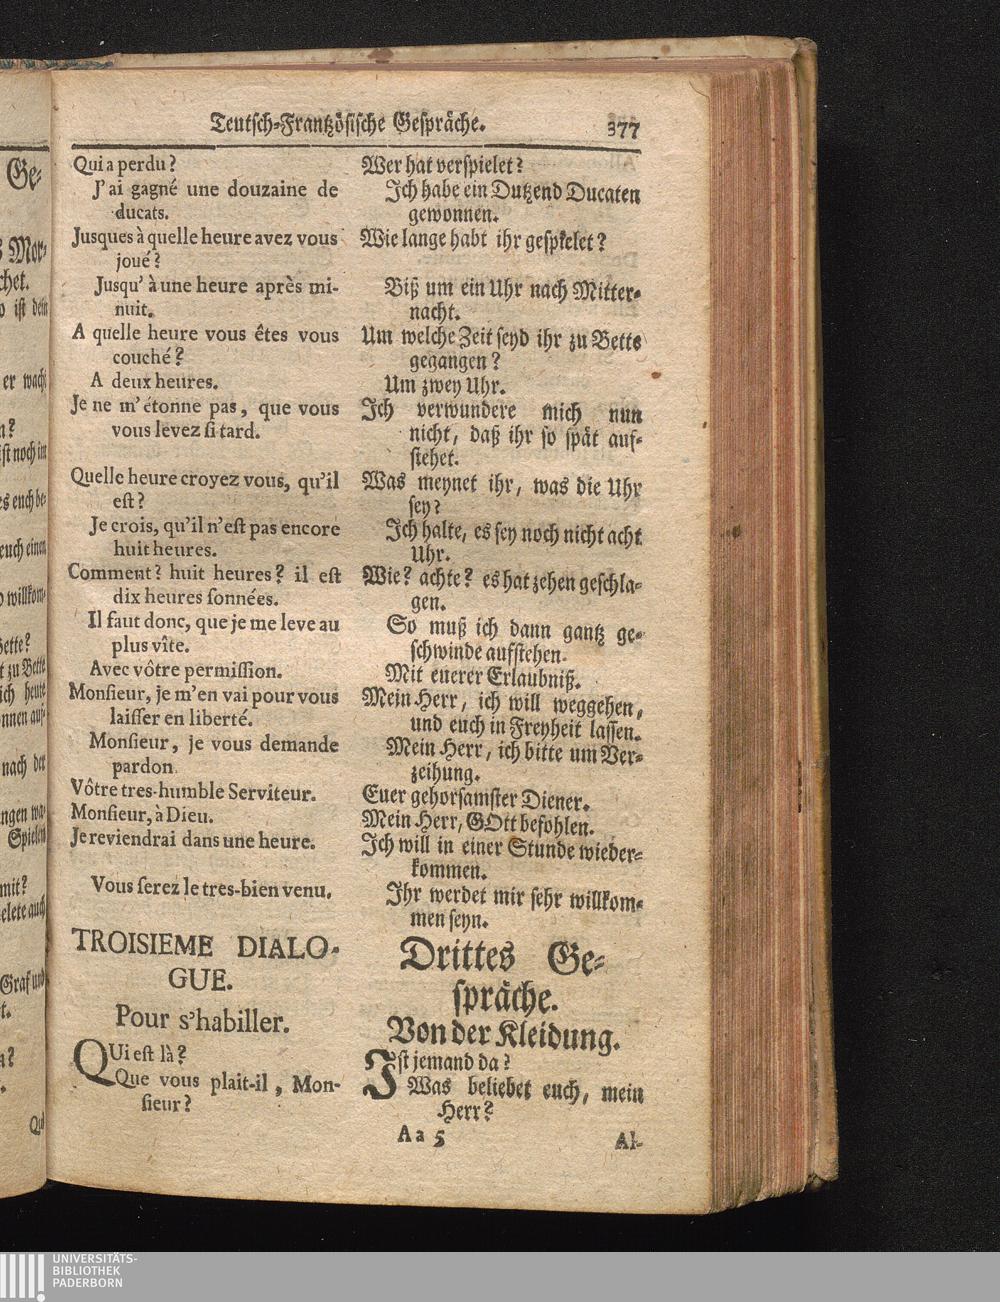 Teutsch-Frantzösische Gespräche. 377
Qui a perdu?
J'ai gagné une douzaine de
ducats.
Jusques à quelle heure avez vous
joué?
Jusqu' à une heure après mi-
nuit.
A quelle heure vous êtes vous
couché?
A deux heures.
Je ne m'étonne pas, que vous
vous levez ſi tard.
Quelle heure croyez vous, qu'il
eſt?
Je crois, qu'il n'eſt pas encore
huit heures.
Comment? huit heures? il eſt
dix heures ſonnées.
Il faut donc, que je me leve au
plus vîte.
Avec vôtre permiſſion.
Monſieur, je m'en vai pour vous
laiſſer en liberté.
Monſieur, je vous demande
pardon.
Vôtre tres-humble Serviteur.
Monſieur, à Dieu.
Je reviendrai dans une heure.
Vous ſerez le tres-bien venu.
TROISIEME DIALO-
GUE.
Pour s'habiller.
QUi eſt là?
Que vous plait-il, Mon-
ſieur?
Wer hat verſpielet?
Ich habe ein Dutzend Ducaten
gewonnen.
Wie lange habt ihr geſpielet?
Biß um ein Uhr nach Mitter-
nacht.
Um welche Zeit ſeyd ihr zu Bette
gegangen?
Um zwey Uhr.
Ich verwundere mich nun
nicht, daß ihr ſo ſpät auf-
ſtehet.
Was meynet ihr, was die Uhr
ſey?
Ich halte, es ſey noch nicht acht
Uhr.
Wie? achte? es hat zehen geſchla-
gen.
So muß ich dann gantz ge-
ſchwinde aufſtehen.
Mit euerer Erlaubniß.
Mein Herr, ich will weggehen,
und euch in Freyheit laſſen.
Mein Herr, ich bitte um Ver-
zeihung.
Euer gehorſamſter Diener.
Mein Herr, GOtt befohlen.
Ich will in einer Stunde wieder-
kommen.
Ihr werdet mir ſehr willkom-
men ſeyn.
Drittes Ge-
ſpräche.
Von der Kleidung.
Iſt jemand da?
Was beliebet euch, mein
Herr?
Aa 5 Al-
UNIVERSITÄTS-
BIBLIOTHEK
PADERBORN